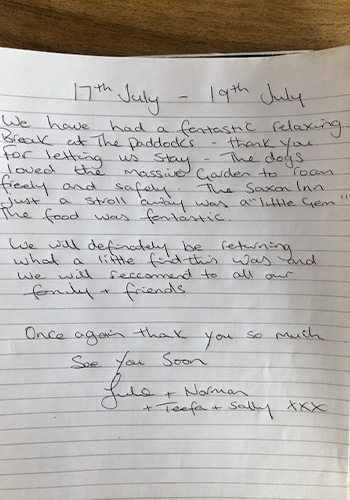 17th July - 19th July
We have had a fantastic relaxing
Break at The Paddocks - thank you
for letting us stay - The dogs
loved the massive Garden to roam
freely and safely. The Saxon Inn
just a stroll away was a "little Gem"
The food was fantastic.
We will definately be returning
what a little find this was and
we will reccomend to all our
family + friends
Once again thank you so much
See you Soon
Julie + Norman
+ Teefa + Sally xxx